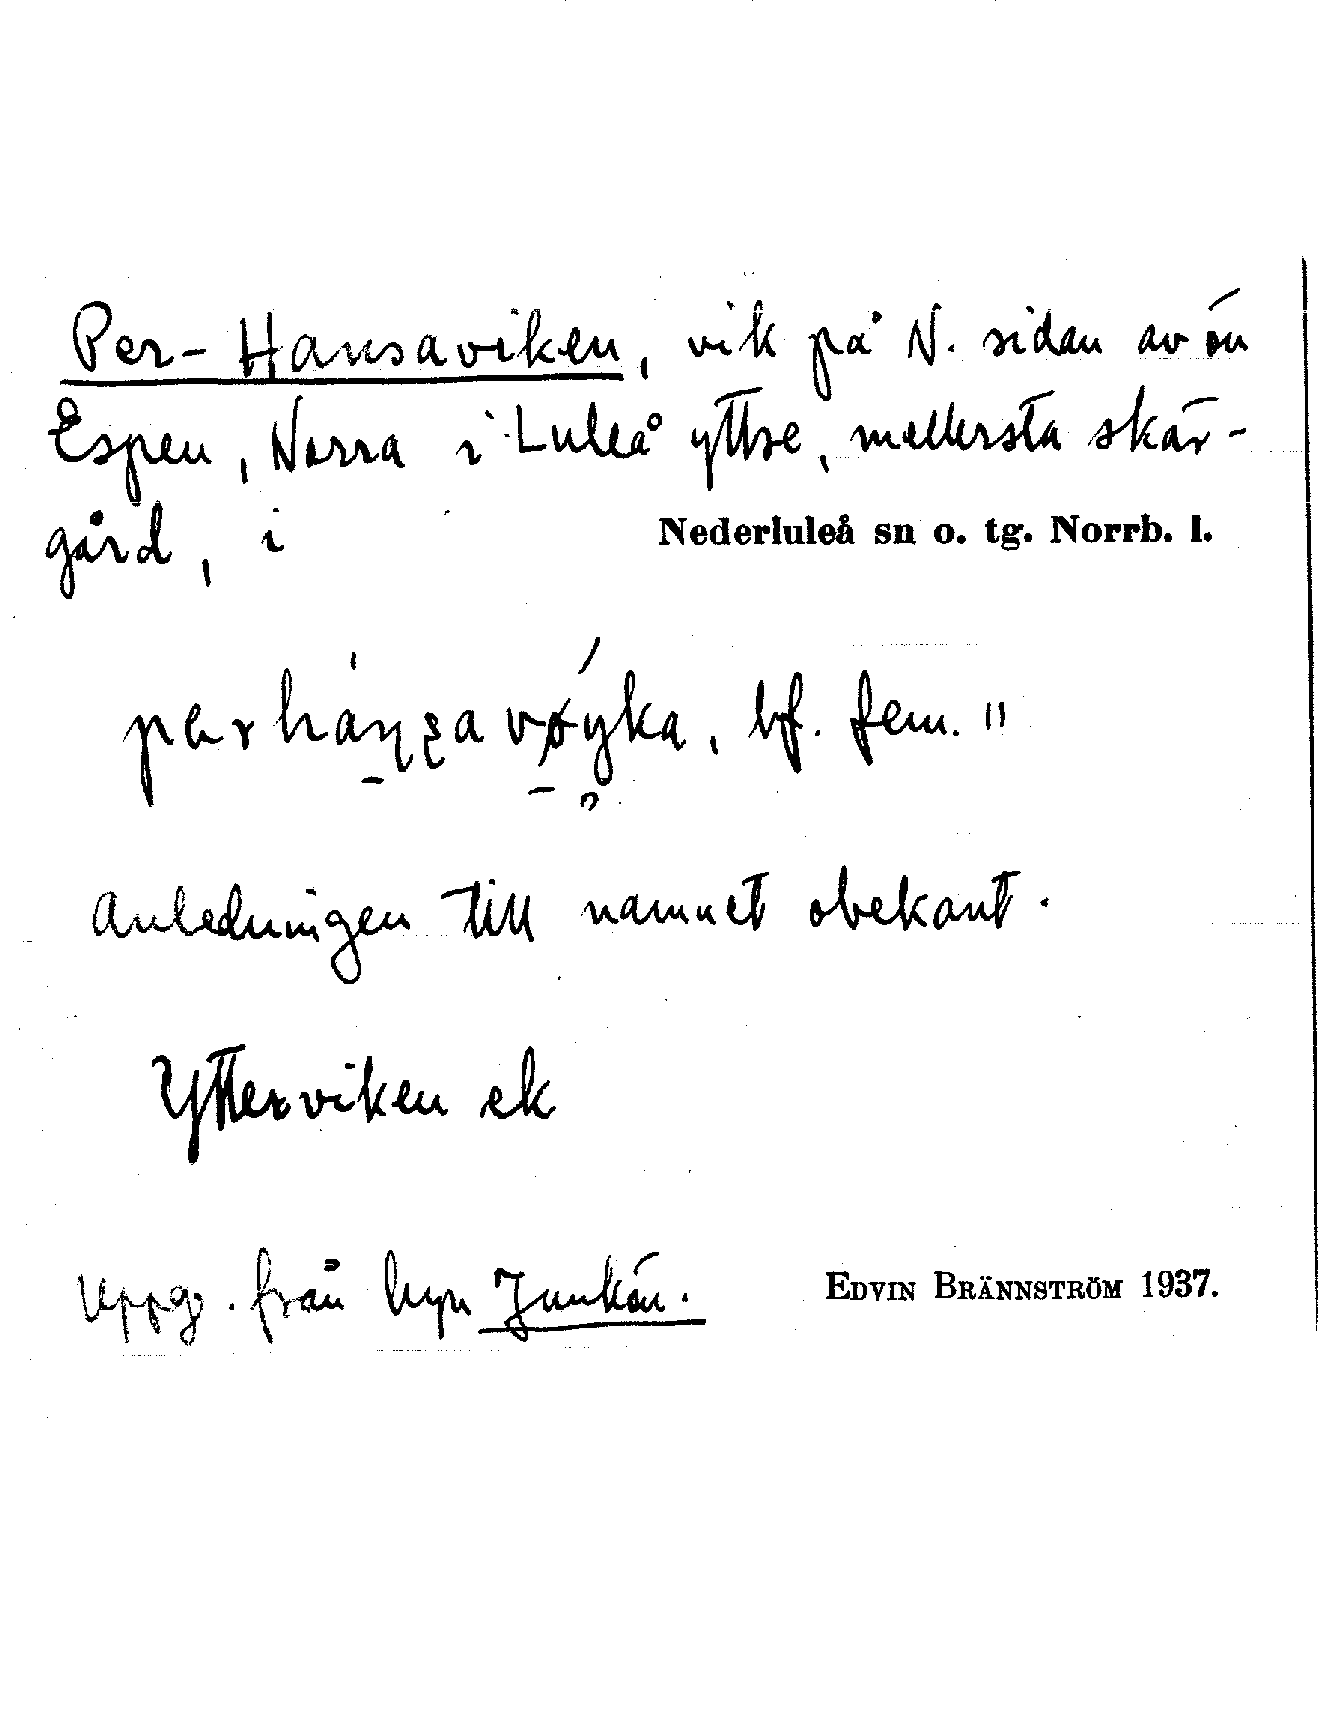 Per-Hansaviken, vik på N. sidan av ön
Espen, Norra i Luleå yttre, mellersta skär-
gård, i Nederluleå sn o. tg. Norrb. l.
perhansavøyka, bf. fem. "
Anledningen till namnet obekant.
Ytterviken ek
Uppg. från byn Junkön. EDVIN BRÄNNSTRÖM 1937.